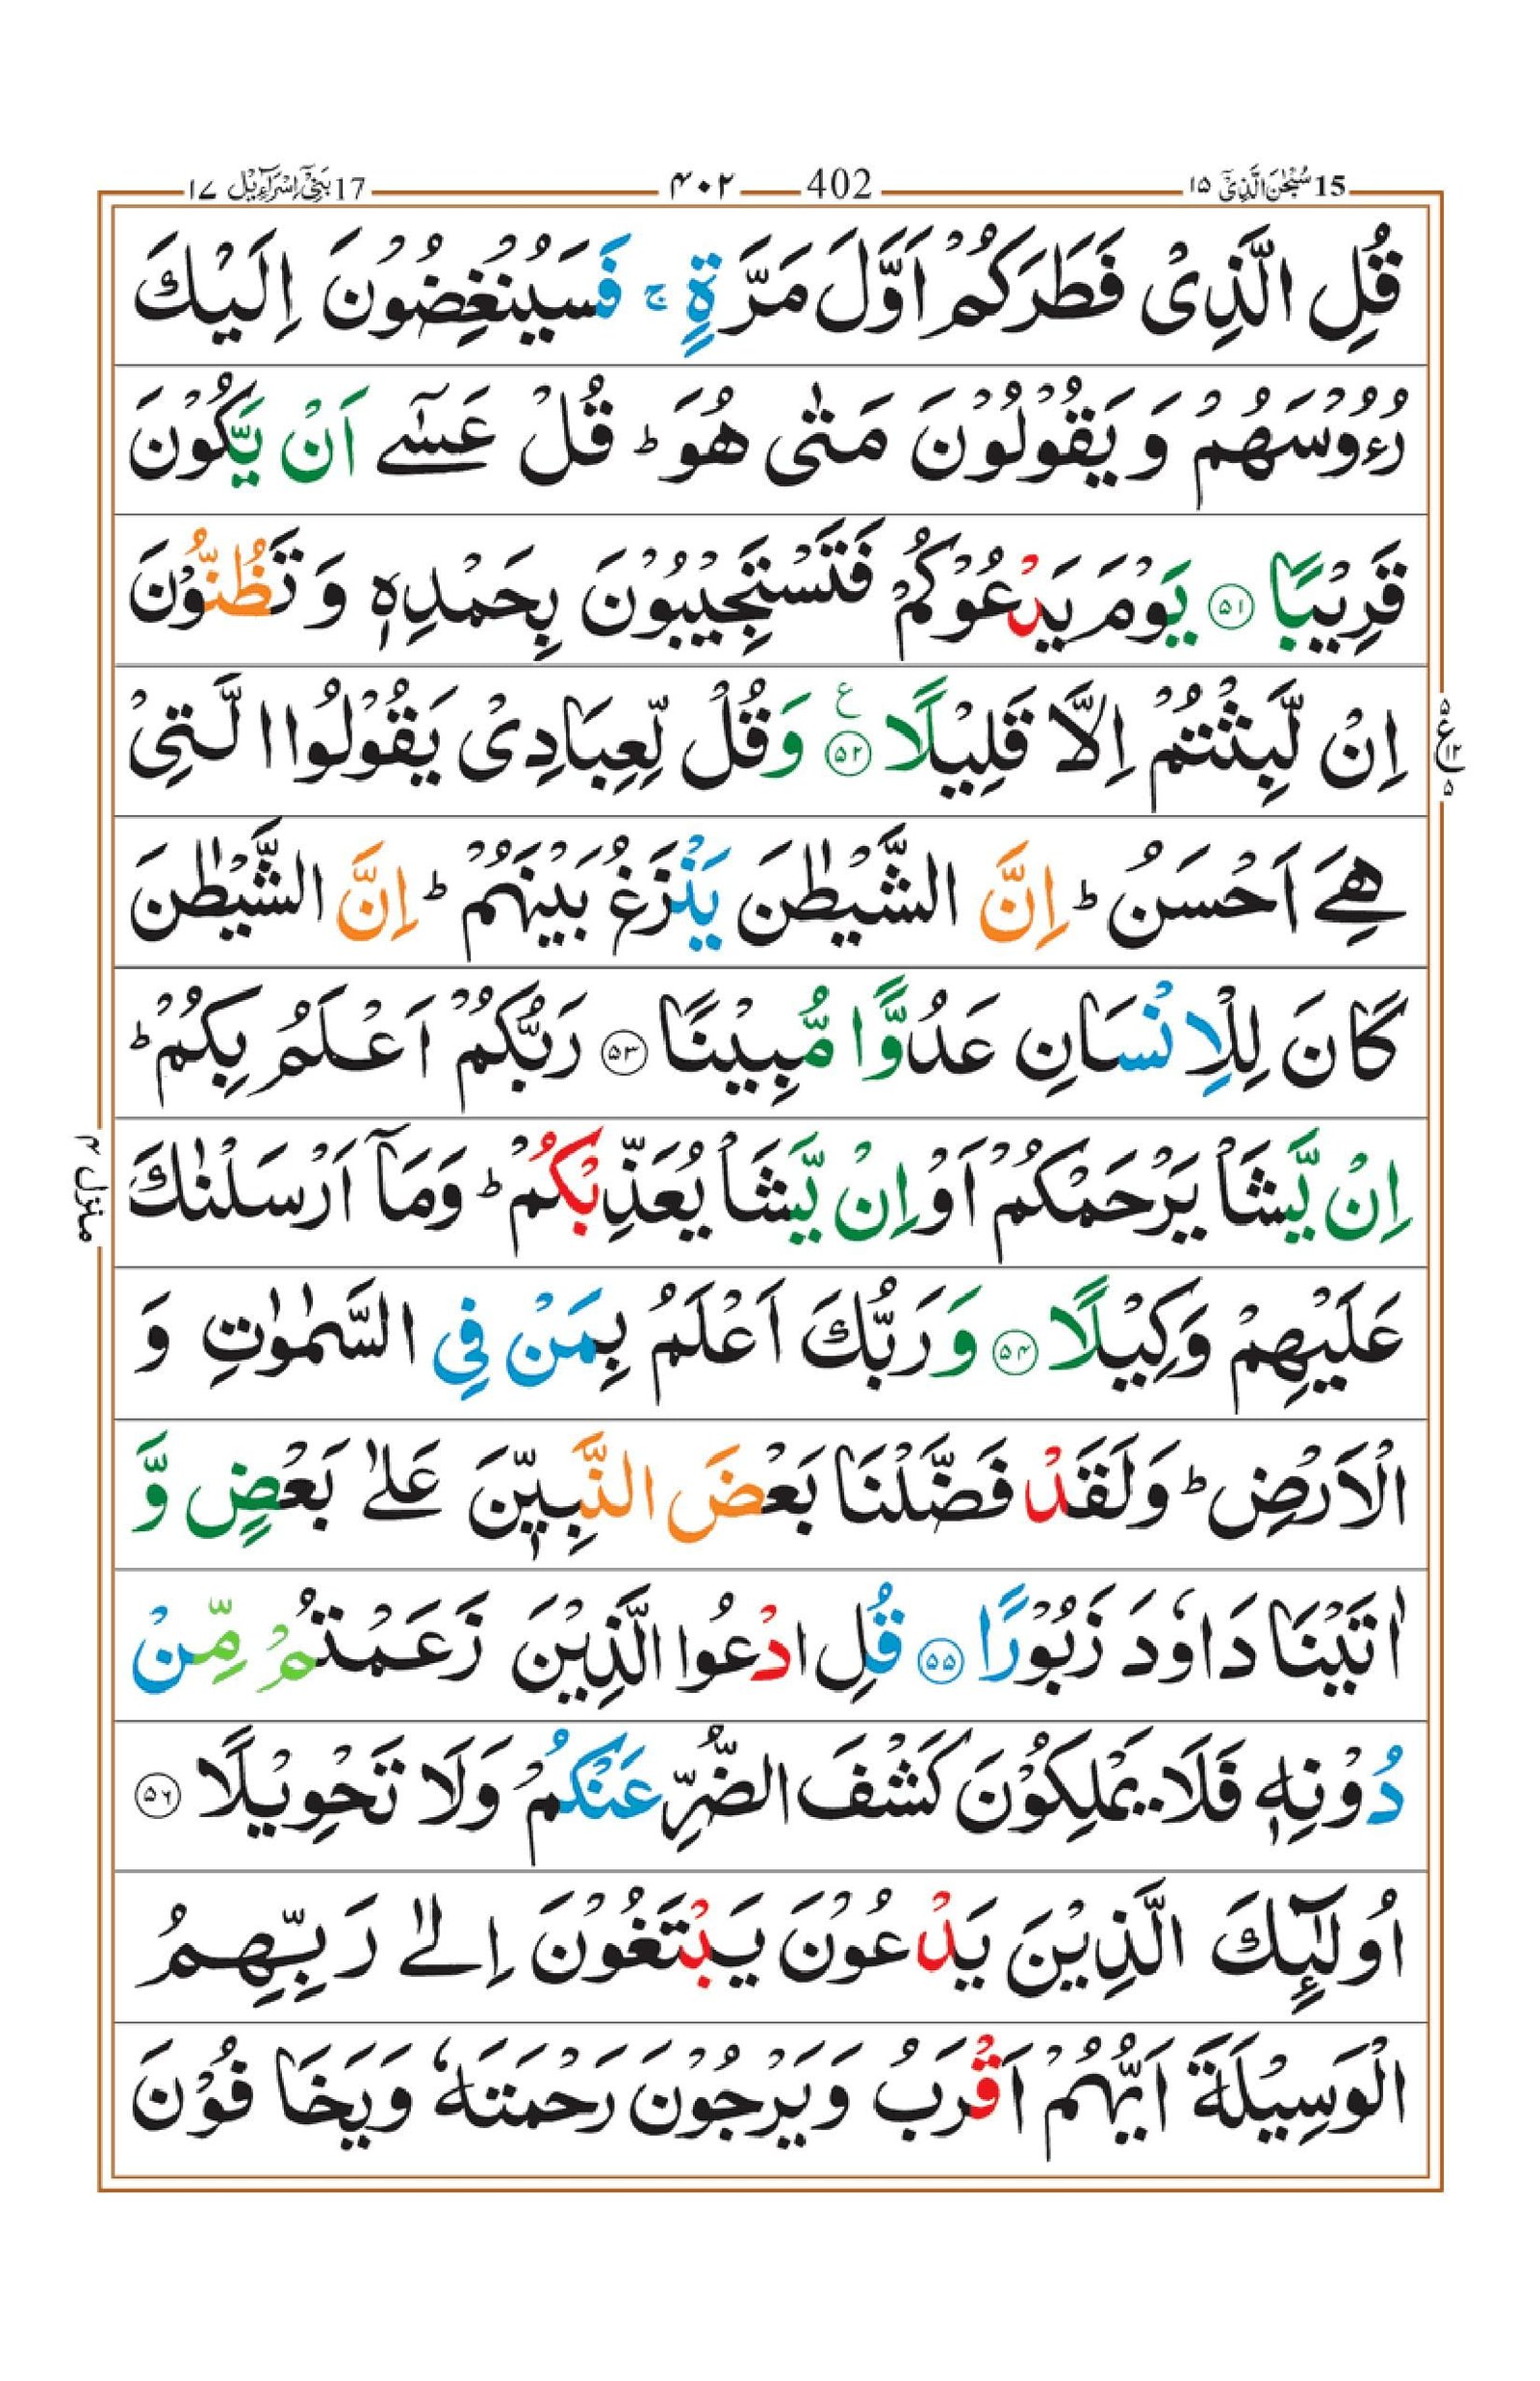 15 سُبْحٰنَ الَّذِیْۤ ۱۵ 402 ۴۰۲ 17 بَنِیْۤ اِسْرَآءِیْل ۱۷
قُلِ الَّذِیْ فَطَرَكُمْ اَوَّلَ مَرَّةٍ ۚ فَسَیُنْغِضُوْنَ اِلَیْكَ
رُءُوْسَهُمْ وَ یَقُوْلُوْنَ مَتٰی هُوَ ؕ قُلْ عَسٰۤی اَنْ یَّكُوْنَ
قَرِیْبًا ﴿۵۱﴾ یَوْمَ یَدْعُوْكُمْ فَتَسْتَجِیْبُوْنَ بِحَمْدِهٖ وَ تَظُنُّوْنَ
اِنْ لَّبِثْتُمْ اِلَّا قَلِیْلًا ﴿۵۲﴾ ع وَقُلْ لِّعِبَادِیْ یَقُوْلُوا الَّتِیْ
هِیَ اَحْسَنُ ؕ اِنَّ الشَّیْطٰنَ یَنْزَغُ بَیْنَهُمْ ؕ اِنَّ الشَّیْطٰنَ
كَانَ لِلْاِنْسَانِ عَدُوًّا مُّبِیْنًا ﴿۵۳﴾ رَبُّكُمْ اَعْلَمُ بِكُمْ ؕ
اِنْ یَّشَاْ یَرْحَمْكُمْ اَوْ اِنْ یَّشَاْ یُعَذِّبْكُمْ ؕ وَمَاۤ اَرْسَلْنٰكَ
عَلَیْهِمْ وَكِیْلًا ﴿۵۴﴾ وَ رَبُّكَ اَعْلَمُ بِمَنْ فِی السَّمٰوٰتِ وَ
الْاَرْضِ ؕ وَلَقَدْ فَضَّلْنَا بَعْضَ النَّبِیّٖنَ عَلٰی بَعْضٍ وَّ
اٰتَیْنَا دَاوٗدَ زَبُوْرًا ﴿۵۵﴾ قُلِ ادْعُوا الَّذِیْنَ زَعَمْتُمْ مِّنْ
دُوْنِهٖ فَلَا یَمْلِكُوْنَ كَشْفَ الضُّرِّ عَنْكُمْ وَلَا تَحْوِیْلًا ﴿۵۶﴾
اُولٰٓئِكَ الَّذِیْنَ یَدْعُوْنَ یَبْتَغُوْنَ اِلٰی رَبِّهِمُ
الْوَسِیْلَةَ اَیُّهُمْ اَقْرَبُ وَیَرْجُوْنَ رَحْمَتَهٗ وَیَخَافُوْنَ
۵ ع ۱۲ ۵
منزل ۴